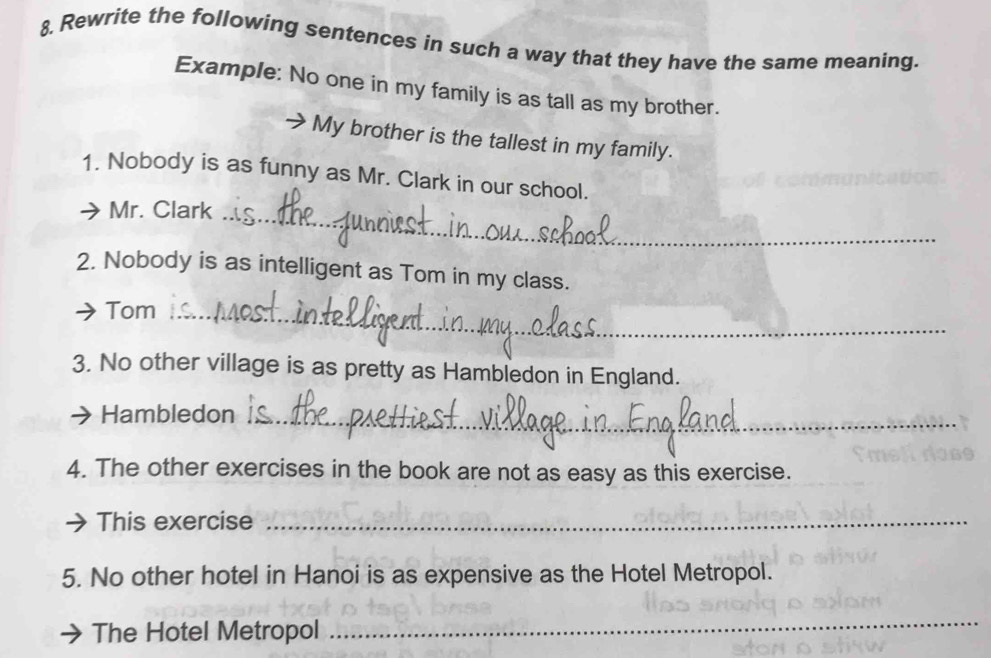 8. Rewrite the following sentences in such a way that they have the same meaning.
Example: No one in my family is as tall as my brother.
→ My brother is the tallest in my family.
1. Nobody is as funny as Mr. Clark in our school.
→ Mr. Clark is the funniest in our school
2. Nobody is as intelligent as Tom in my class.
→ Tom is most intelligent in my class
3. No other village is as pretty as Hambledon in England.
→ Hambledon is the prettiest village in England
4. The other exercises in the book are not as easy as this exercise.
→ This exercise
5. No other hotel in Hanoi is as expensive as the Hotel Metropol.
→ The Hotel Metropol